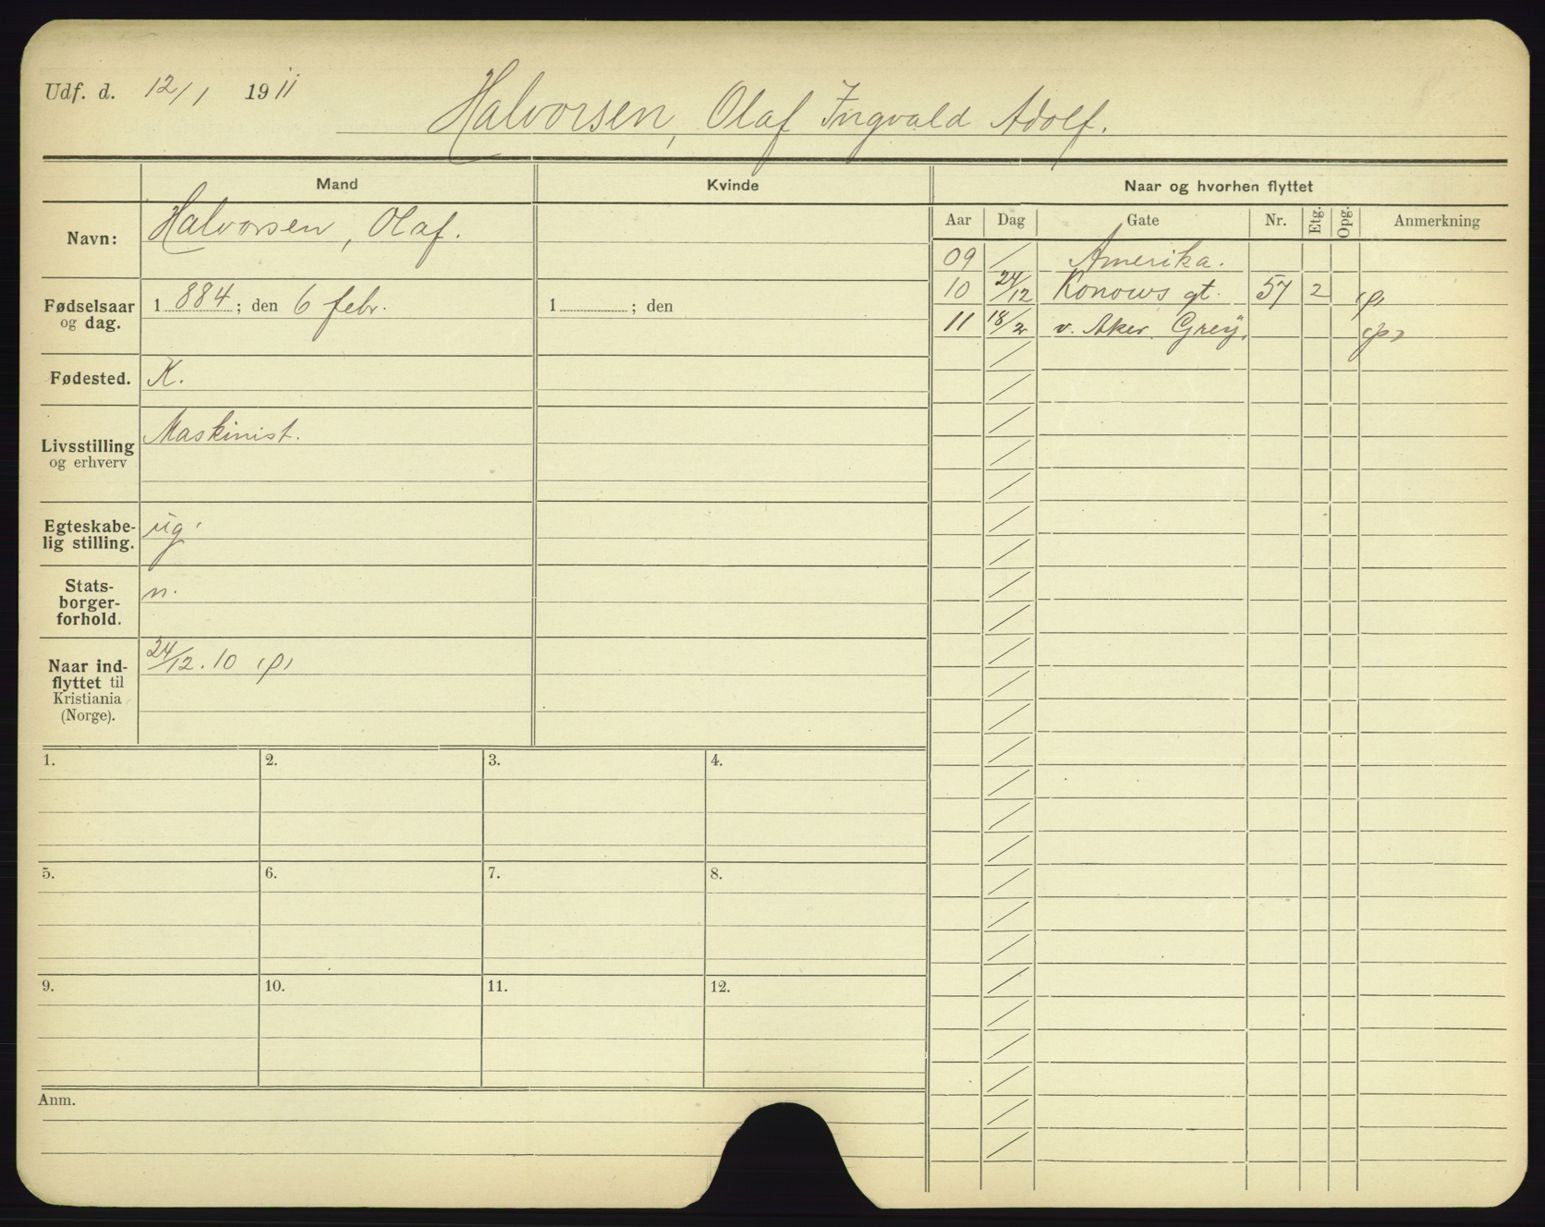 Udf. d. 12/1 1911
Halvorsen, Olaf Ingvald Adolf.
Mand Kvinde Naar og hvorhen flyttet
Aar Dag Gate Nr. Etg. Opg. Anmerkning
Navn: Halvorsen, Olaf.
09 Amerika.
10 24/12 Konows gt. 57 2
11 18/2 v. Aker.
Fødselsaar
og dag.
1884; den 6 febr. 1 ; den
Fødested. K.
Livsstilling
og erhverv
Maskinist.
Egteskabe-
lig stilling.
ug.
Stats-
borger-
forhold.
n.
Naar ind-
flyttet til
Kristiania
(Norge).
24/12.10
1. 2. 3. 4.
5. 6. 7. 8.
9. 10. 11. 12.
Anm.